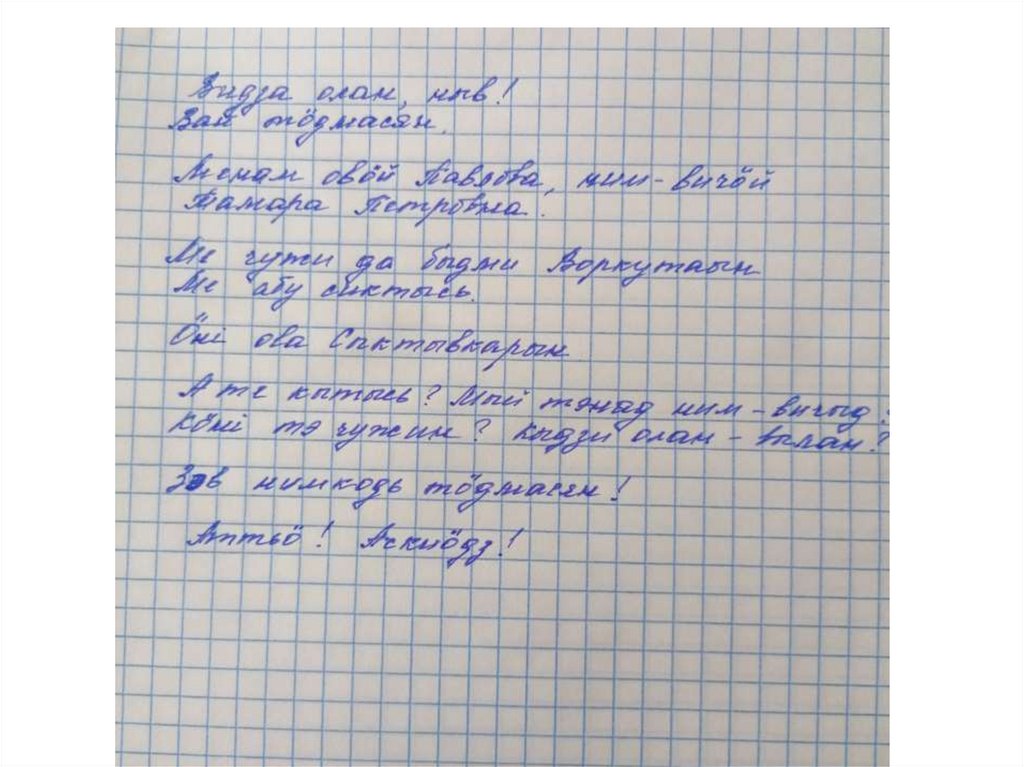 Видза олан, ныв!
Вай тӧдмасян.
Менам овӧй Павлова, ним-вичӧй
Тамара Петровна.
Ме чужи да быдми Воркутаын
Ме абу сиктысь.
Ӧні ова Сыктывкарын
А те кытысь? Мый тэнад ним-вичыд?
Кӧні тэ чужин? Кыдзи олан-вылан?
Зэв нимкодь тӧдмасян!
Аттьӧ! Аскиӧдз!